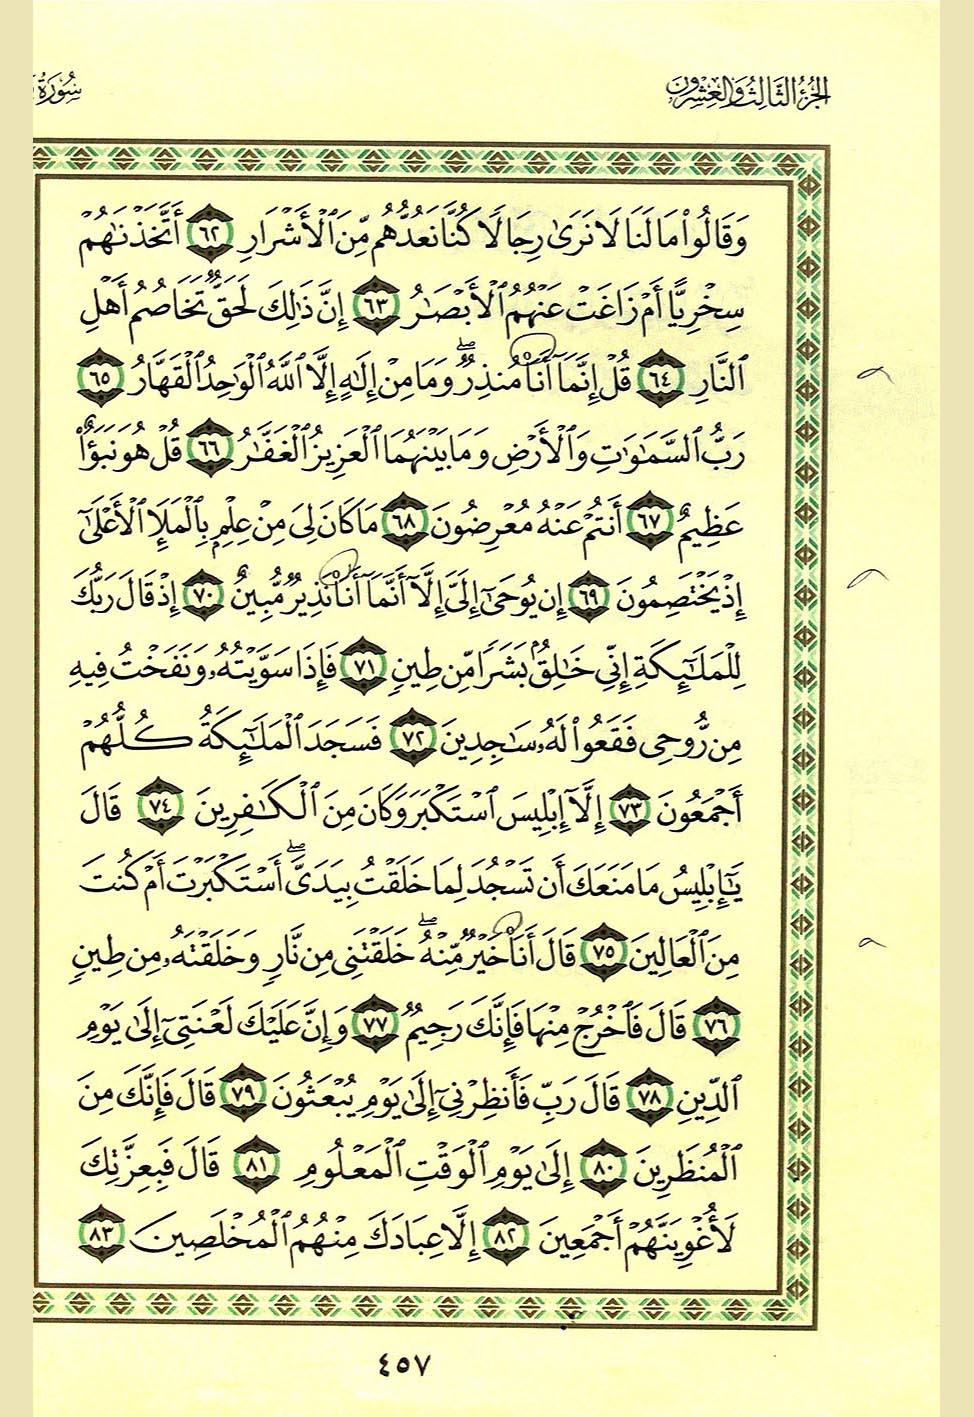 الجزء الثالث والعشرون
سورة
وَقَالُوا۟ مَا لَنَا لَا نَرَىٰ رِجَالًا كُنَّا نَعُدُّهُم مِّنَ ٱلْأَشْرَارِ ٦٢ أَتَّخَذْنَٰهُمْ
سِخْرِيًّا أَمْ زَاغَتْ عَنْهُمُ ٱلْأَبْصَٰرُ ٦٣ إِنَّ ذَٰلِكَ لَحَقٌّ تَخَاصُمُ أَهْلِ
ٱلنَّارِ ٦٤ قُلْ إِنَّمَآ أَنَا۠ مُنذِرٌ ۖ وَمَا مِنْ إِلَٰهٍ إِلَّا ٱللَّهُ ٱلْوَٰحِدُ ٱلْقَهَّارُ ٦٥
رَبُّ ٱلسَّمَٰوَٰتِ وَٱلْأَرْضِ وَمَا بَيْنَهُمَا ٱلْعَزِيزُ ٱلْغَفَّٰرُ ٦٦ قُلْ هُوَ نَبَؤٌا۟
عَظِيمٌ ٦٧ أَنتُمْ عَنْهُ مُعْرِضُونَ ٦٨ مَا كَانَ لِىَ مِنْ عِلْمٍۭ بِٱلْمَلَإِ ٱلْأَعْلَىٰٓ
إِذْ يَخْتَصِمُونَ ٦٩ إِن يُوحَىٰٓ إِلَىَّ إِلَّآ أَنَّمَآ أَنَا۠ نَذِيرٌ مُّبِينٌ ٧٠ إِذْ قَالَ رَبُّكَ
لِلْمَلَٰٓئِكَةِ إِنِّى خَٰلِقٌۢ بَشَرًا مِّن طِينٍ ٧١ فَإِذَا سَوَّيْتُهُۥ وَنَفَخْتُ فِيهِ
مِن رُّوحِى فَقَعُوا۟ لَهُۥ سَٰجِدِينَ ٧٢ فَسَجَدَ ٱلْمَلَٰٓئِكَةُ كُلُّهُمْ
أَجْمَعُونَ ٧٣ إِلَّآ إِبْلِيسَ ٱسْتَكْبَرَ وَكَانَ مِنَ ٱلْكَٰفِرِينَ ٧٤ قَالَ
يَٰٓإِبْلِيسُ مَا مَنَعَكَ أَن تَسْجُدَ لِمَا خَلَقْتُ بِيَدَىَّ ۖ أَسْتَكْبَرْتَ أَمْ كُنتَ
مِنَ ٱلْعَالِينَ ٧٥ قَالَ أَنَا۠ خَيْرٌ مِّنْهُ ۖ خَلَقْتَنِى مِن نَّارٍ وَخَلَقْتَهُۥ مِن طِينٍ
٧٦ قَالَ فَٱخْرُجْ مِنْهَا فَإِنَّكَ رَجِيمٌ ٧٧ وَإِنَّ عَلَيْكَ لَعْنَتِىٓ إِلَىٰ يَوْمِ
ٱلدِّينِ ٧٨ قَالَ رَبِّ فَأَنظِرْنِىٓ إِلَىٰ يَوْمِ يُبْعَثُونَ ٧٩ قَالَ فَإِنَّكَ مِنَ
ٱلْمُنظَرِينَ ٨٠ إِلَىٰ يَوْمِ ٱلْوَقْتِ ٱلْمَعْلُومِ ٨١ قَالَ فَبِعِزَّتِكَ
لَأُغْوِيَنَّهُمْ أَجْمَعِينَ ٨٢ إِلَّا عِبَادَكَ مِنْهُمُ ٱلْمُخْلَصِينَ ٨٣
٤٥٧